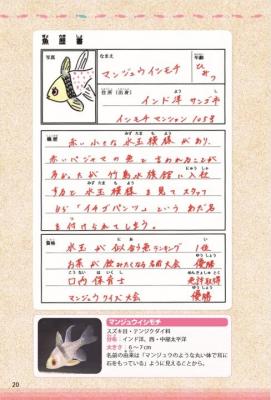 魚歴書
写真
なまえ
マンジュウイシモチ
年齢
ひみつ
住所(出身)
インド洋 サンゴ市
イシモチマンション 105号
略歴
赤い小さな水玉模様があり、
赤いパジャマの魚と言われることが
多々ある 竹島水族館に入社
すると水玉模様を見てスタッフ
から「イチゴパンツ」というあだ名
を付けられてしまう。
資格
水玉が似合う魚ランキング 1位
お茶が飲みたくなる名前大会 優勝
口内保育士 免許取得
マンジュウクイズ大会 優勝
マンジュウイシモチ
スズキ目・テンジクダイ科
分布:インド洋、西・中部太平洋
大きさ:6〜7cm
名前の由来は「マンジュウのような丸い体で耳に
石をもっている」ように見えることから。
20